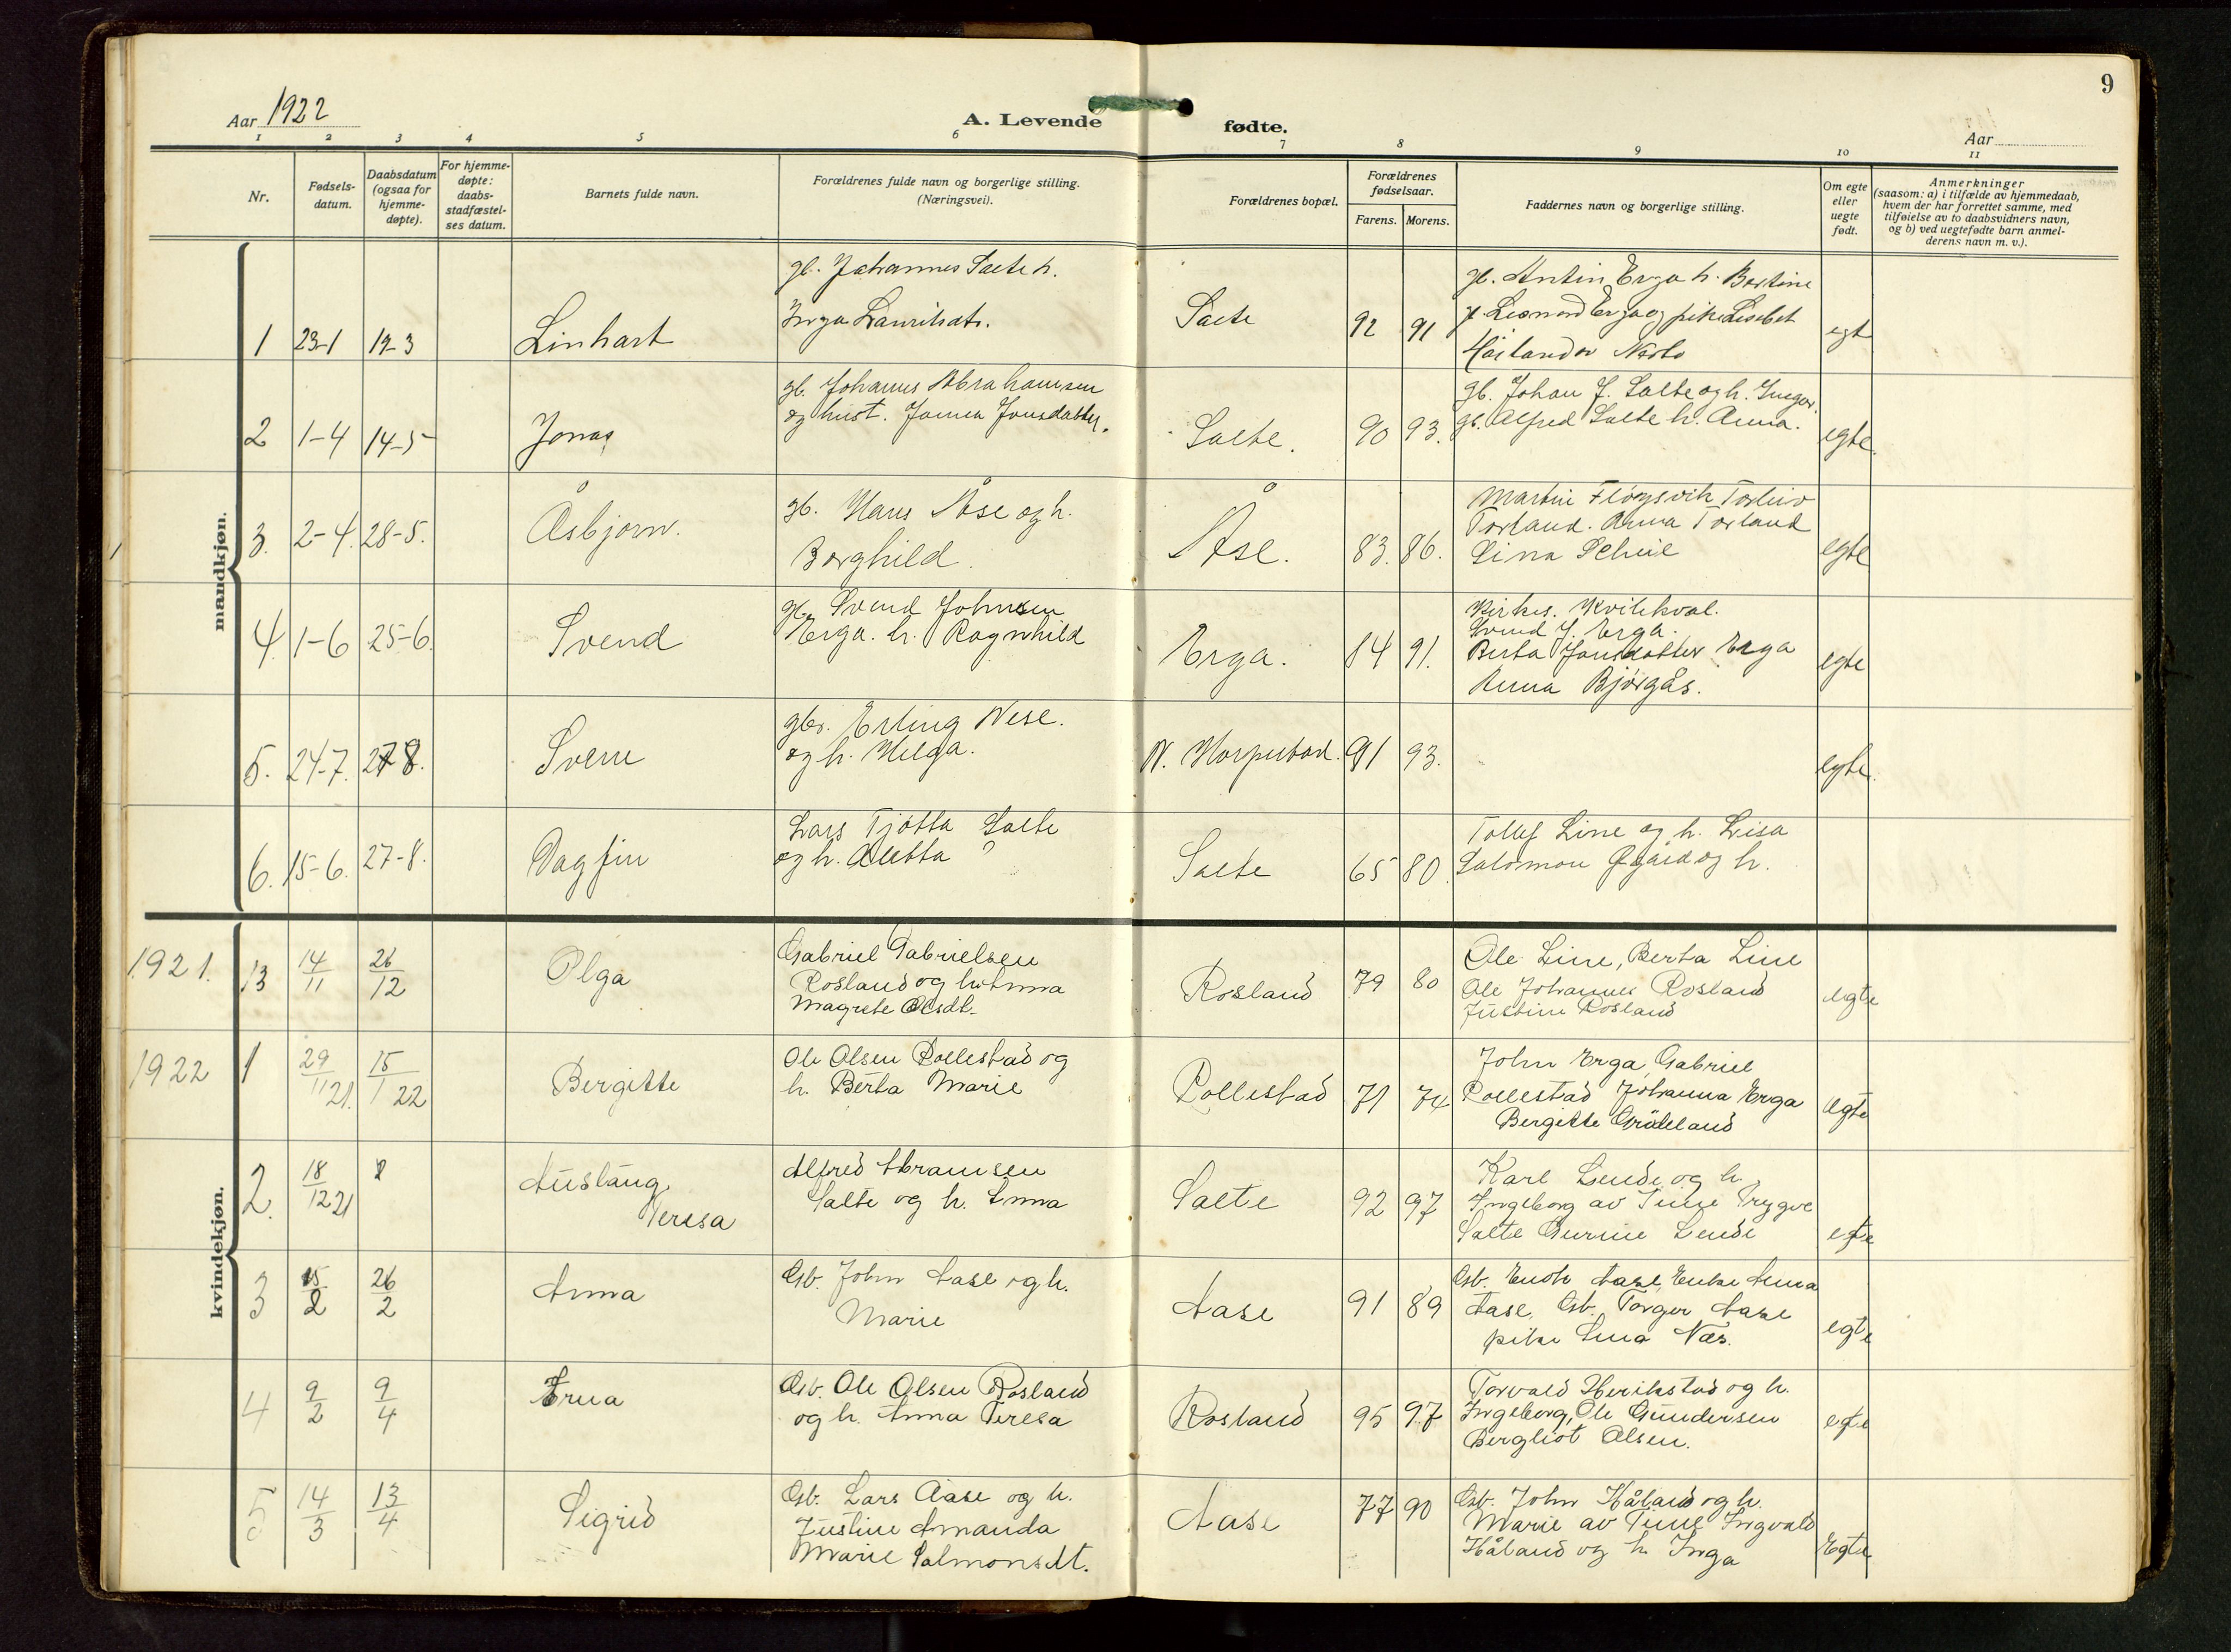 9
Aar 1922
A. Levende fødte.
Aar
1 2 3 4 5 6 7 8 9 10 11
Nr.
Fødsels-
datum.
Daabsdatum
(ogsaa for
hjemme-
døpte).
For hjemme-
døpte:
daabs-
stadfæstel-
ses datum.
Barnets fulde navn.
Forældrenes fulde navn og borgerlige stilling.
(Næringsvei).
Forældrenes bopæl.
Forældrenes
fødselsaar.
Farens. Morens.
Faddernes navn og borgerlige stilling.
Om egte
eller
uegte
født.
Anmerkninger
(saasom: a) i tilfælde av hjemmedaab,
hvem der har forrettet samme, med
tilføielse av to daabsvidners navn,
og b) ved uegtefødte barn anmel-
derens navn m. v.).
mandkjøn.
1 23-1 19-3 Linhart
gb. Johannes Salte h.
Inga Lauritsdt.
Salte 92 91
gb. Antin Erga h. Bertine
Leonard Erga og pike Lisebet
Høiland av Nærbø
egt
2 1-4 14-5 Jonas
gb. Johannes Abrahamsen
og hust. Jonea Jonsdatter.
Salte. 90 93.
gb. Johan J. Salte og h. Inger.
gb. Alfred Salte h. Anna.
egte
3. 2-4. 28-5. Åsbjørn.
gb. Hans Åse og h.
Borghild.
Åse. 83. 86.
Martin Fløysvik Torleiv
Torland. Anna Torland
Lina
egte
4. 1-6 25-6. Svend
gb. Svend Johnsen
Erga. h. Ragnhild
Erga. 84 91.
Kirkes. Kvilhval.
Svend J. Erga.
Berta Jonsdatter Erga
Anna Bjørgås.
egte
5. 24-7. 27 8. Sverre
gbr. Erling Nese.
og h. Helga.
N. Horpestad. 91 93.
egte.
6. 15-6. 27-8. Dagfin
Lars Tjøtta Salte
og h. Aletta ?
Salte 65 80.
Tollef Line og h. Lisa
Salomon og h.
kvindekjøn.
1921. 13 14/11 26/12 Olga
Gabriel Gabrielsen
Rosland og h. Anna
Magrete Olsdt.
Rosland 79 80
Ole Line, Berta Line
Ole Johannes Rosland
Justine Rosland
egte
1922 1 29/11 21. 15/1 22 Bergitte
Ole Olsen Pollestad og
h. Berta Marie
Pollestad 71 74
John Erga, Gabriel
Pollestad Johanna Erga
Bergitte Grødeland
egte
2. 18/12 21 Auslaug
Teresa
Alfred Abramsen
Salte og h. Anna
Salte 92 97
Karl Lende og h.
Ingeborg av Time Trygve
Salte Gurine Lende
egte
3 15/2 26/2 Anna
Gb. John Aase og h.
Marie
Aase 91 89
Gb. Enok Aase, Enke Anna
Aase, Gb. Torger Aase
pike Lina Næs.
egte
4 9/2 9/4 Erna
Gb. Ole Olsen Rosland
og h. Anna Teresa
Rosland 95 97
Torvald Herikstad og h.
Ingeborg, Ole Gundersen
Bergliot Olsen.
egte
5 14/3 13/4 Sigrid
Gb. Lars Aase og h.
Justine Amanda
Marie Salmonsdt.
Aase 77 90
Gb. John Håland og h.
Marie av Time Ingvald
Håland og h. Inga
Egte